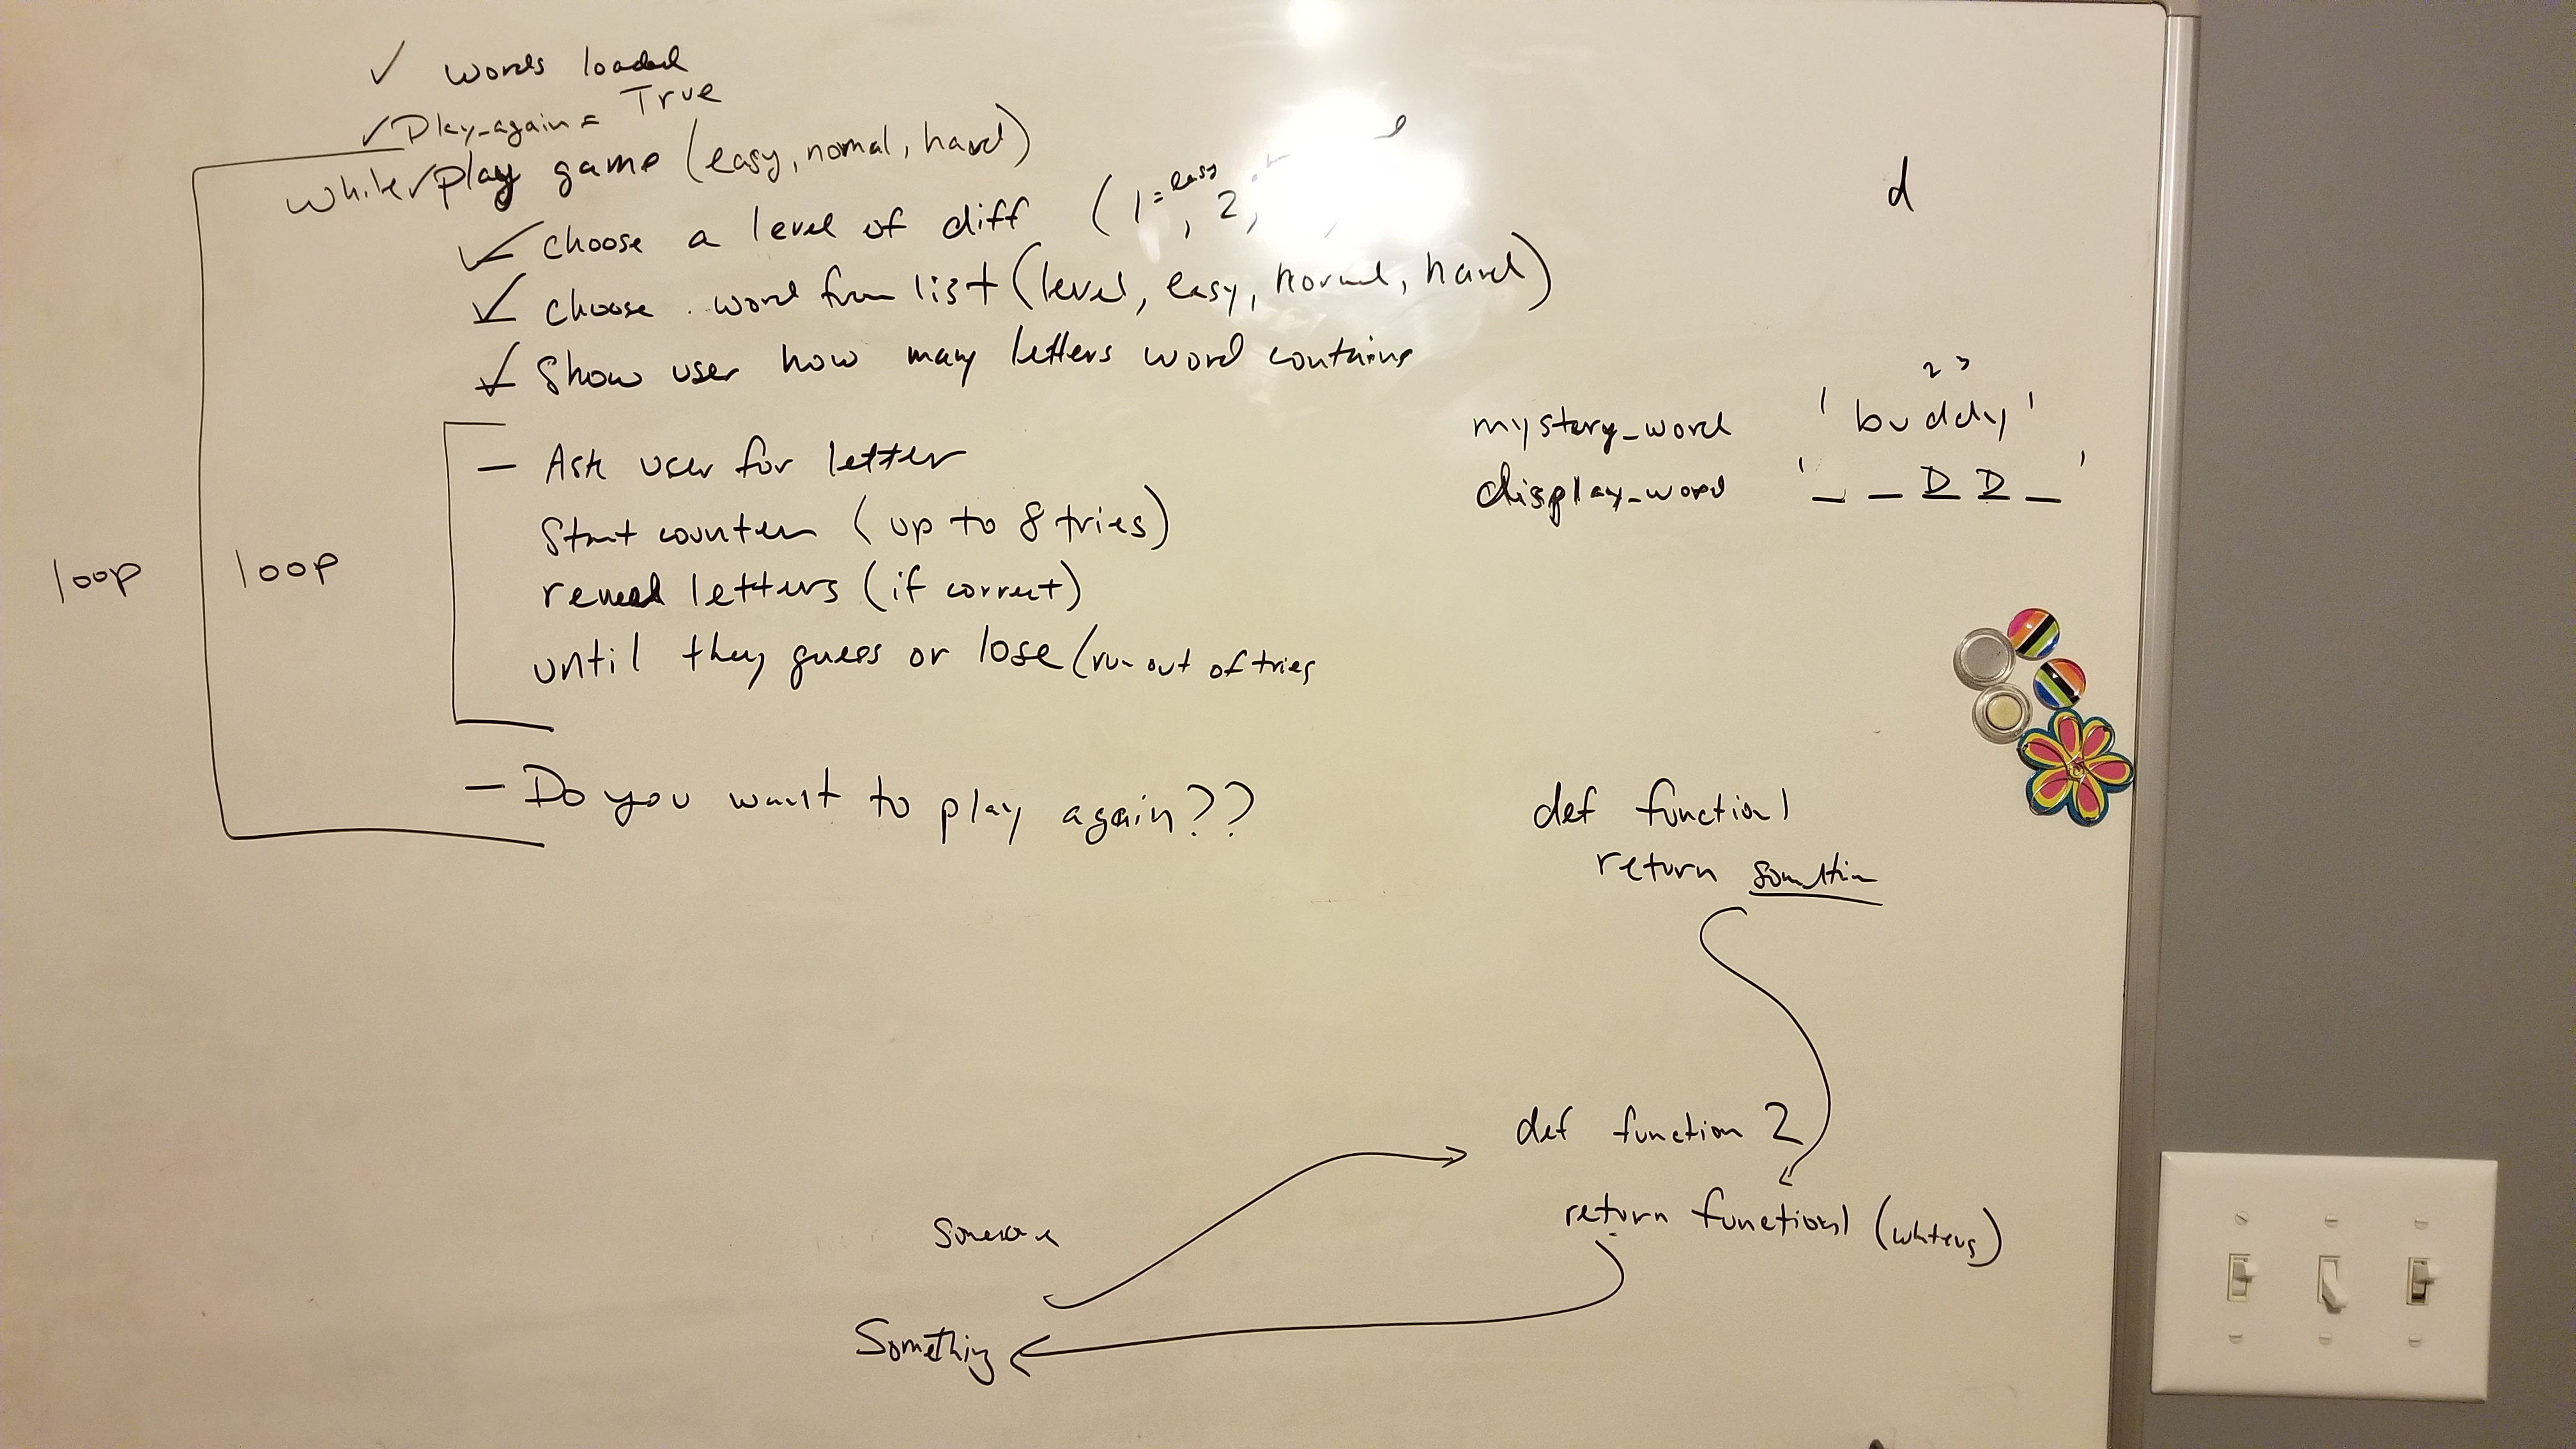 ✓ words loaded
✓ Play_again = True
while ✓ play game (easy, nomal, hard)
✓ choose a level of diff (1=easy, 2,
✓ choose word from list (level, easy, normal, hard)
✓ Show user how many letters word contains
— Ask user for letter
Start counter (up to 8 tries)
reveal letters (if correct)
until they guess or lose (run out of tries
loop
loop
— Do you want to play again??
d
2 3
mystery_word ' buddy '
display_word ' _ _ D D _ '
def function1
return somethin
def function 2
return function1 (whatevs)
Something